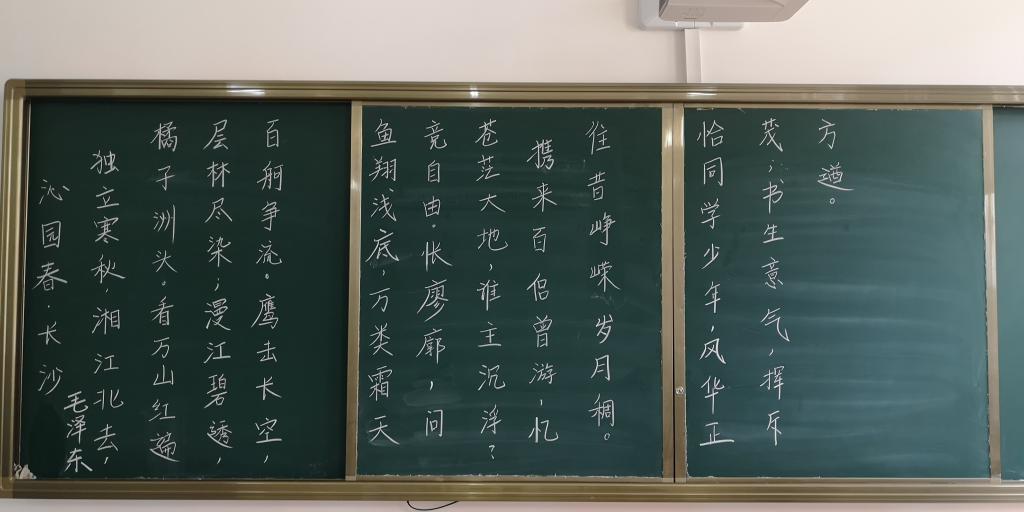 沁园春·长沙
毛泽东
独立寒秋，湘江北去，
橘子洲头。看万山红遍
层林尽染；漫江碧透，
百舸争流。鹰击长空，
鱼翔浅底，万类霜天
竞自由。怅廖廓，问
苍茫大地，谁主沉浮？
携来百侣曾游，忆
往昔峥嵘岁月稠。
恰同学少年，风华正
茂；书生意气，挥斥
方遒。